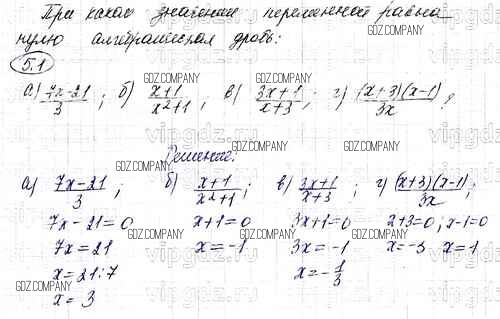 При каком значении переменной равна
нулю алгебраическая дробь:
5.1
а) 7x-21/3 ; б) x+1/x²+1 ; в) 3x+1/x+3 ; г) (x+3)(x-1)/3x ,
Решение:
а) 7x-21/3 ; б) x+1/x²+1 ; в) 3x+1/x+3 ; г) (x+3)(x-1)/3x ;
7x-21=0 x+1=0 3x+1=0 2+3=0; x-1=0
7x=21 x=-1 3x=-1 x=-3 x=1
x=21:7 x=-1/3
x=3
GDZ.COMPANY
GDZ.COMPANY
GDZ.COMPANY
GDZ.COMPANY
GDZ.COMPANY
GDZ.COMPANY
GDZ.COMPANY
GDZ.COMPANY
GDZ.COMPANY
GDZ.COMPANY
GDZ.COMPANY
vipgdz.ru